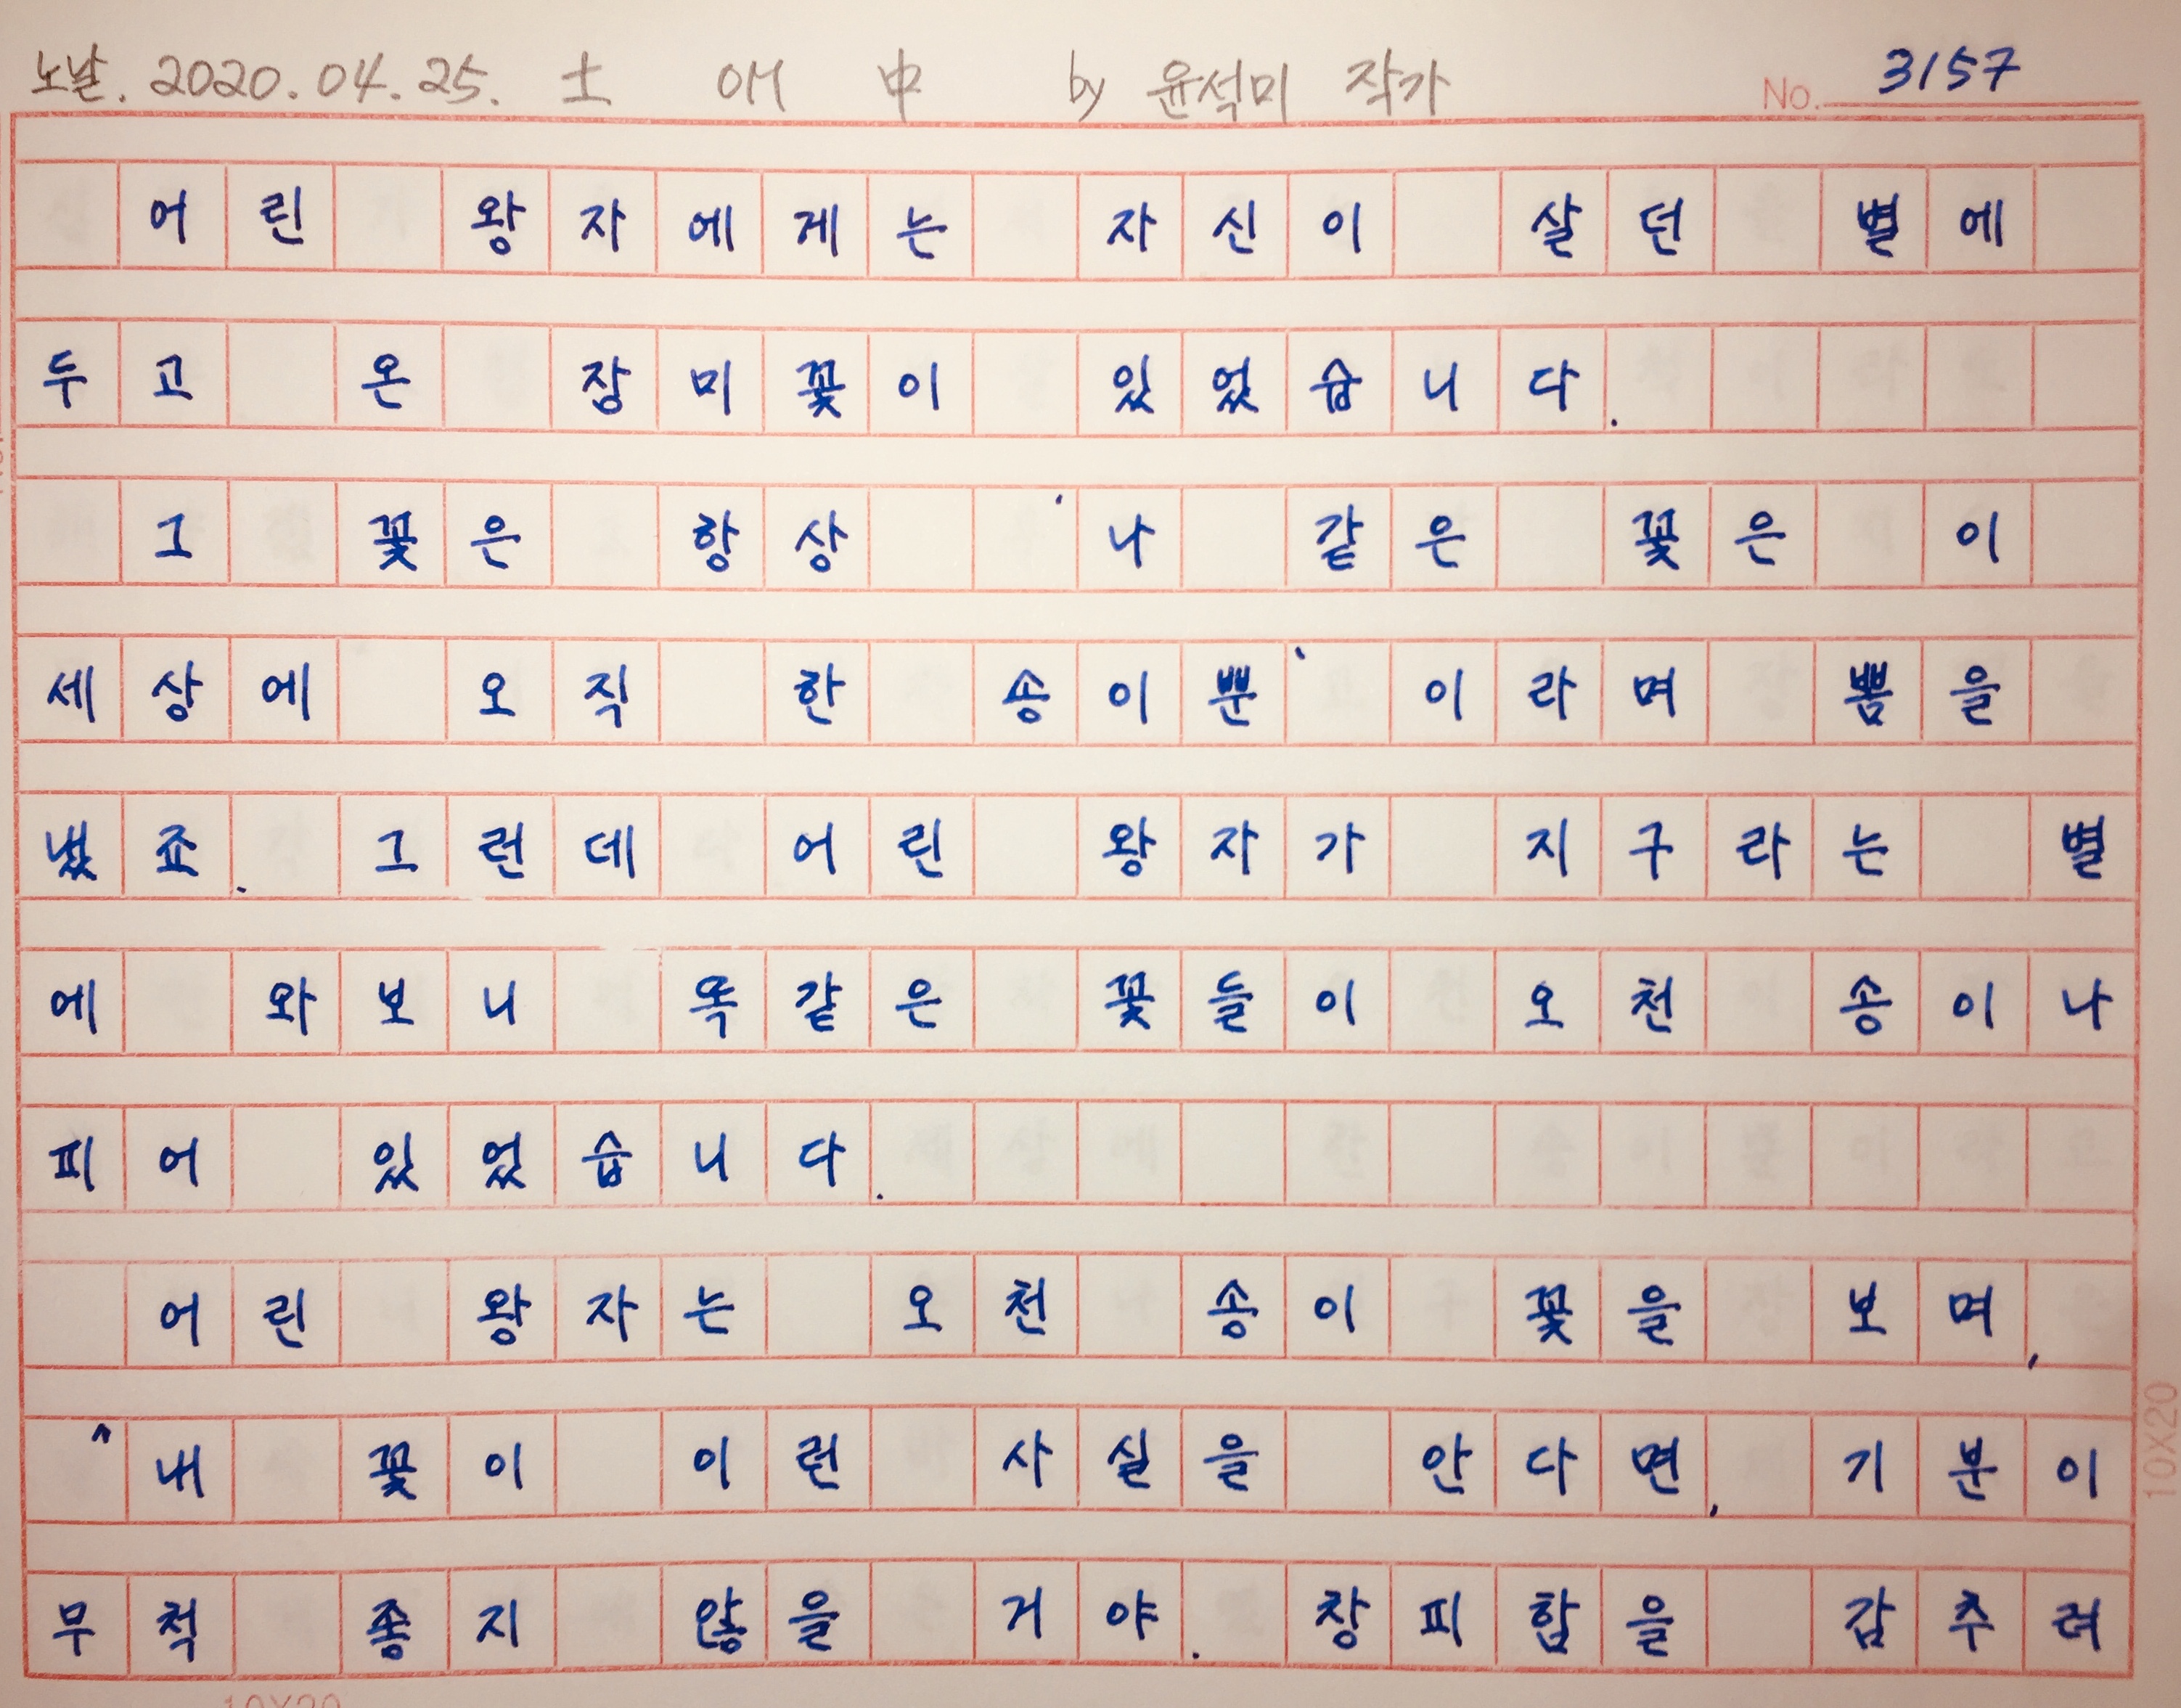 노날. 2020. 04. 25. 土 애 中 by 윤석미 작가 No. 3157
어린 왕자에게는 자신이 살던 별에
두고 온 장미꽃이 있었습니다.
그 꽃은 항상 '나 같은 꽃은 이
세상에 오직 한 송이뿐'이라며 뽐을
냈죠. 그런데 어린 왕자가 지구라는 별
에 와보니 똑같은 꽃들이 오천 송이나
피어 있었습니다.
어린 왕자는 오천 송이 꽃을 보며,
"내 꽃이 이런 사실을 안다면, 기분이
무척 좋지 않을 거야. 창피함을 감추려
10X20
10X20